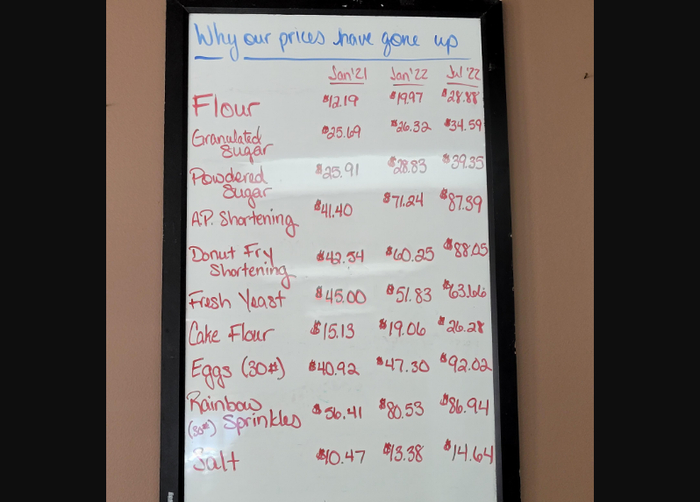 Why our prices have gone up
Jan'21 Jan'22 Jul '22
Flour $12.19 $19.97 $28.88
Granulated $25.69 $26.32 $34.59
Sugar
Powdered $25.91 $28.83 $39.35
Sugar
A.P. Shortening $41.40 $71.24 $87.39
Donut Fry $42.54 $60.25 $88.05
Shortening
Fresh Yeast $45.00 $51.83 $63.66
Cake Flour $15.13 $19.06 $26.28
Eggs (30#) $40.92 $47.30 $92.02
Rainbow $56.41 $80.53 $86.94
Sprinkles
Salt $10.47 $13.38 $14.64